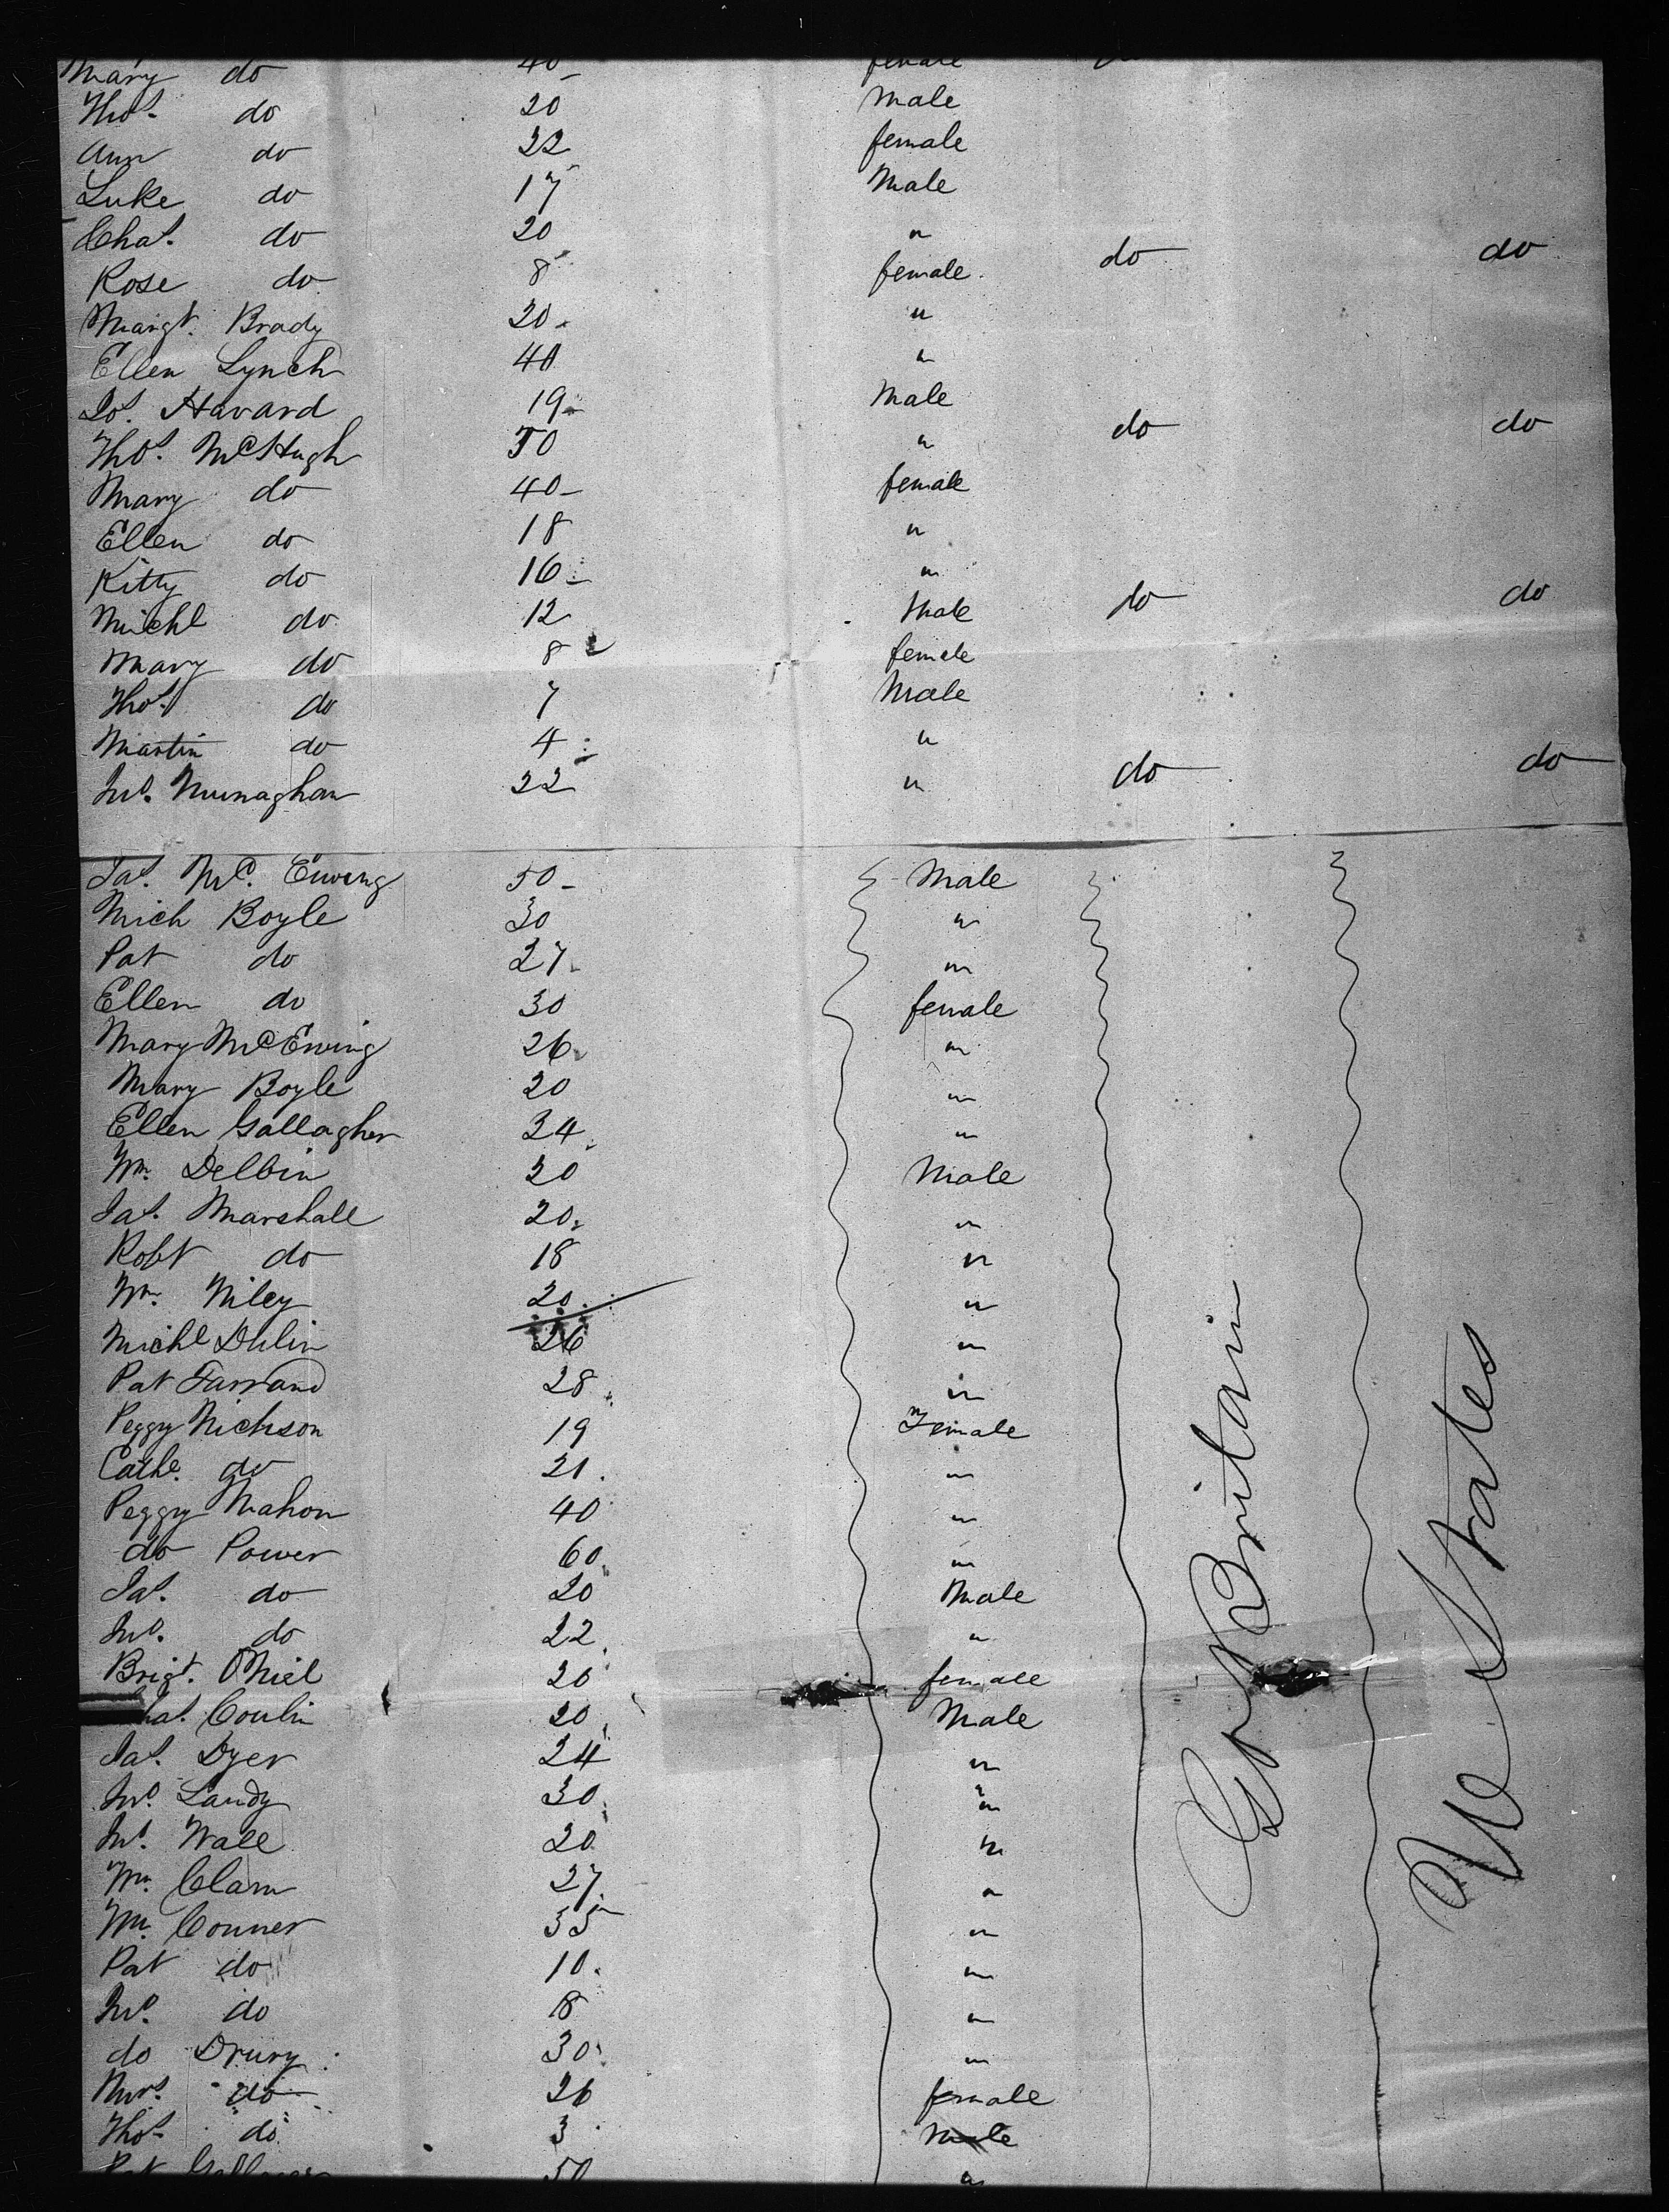 Mary do 40 female
Thos. do 20 Male
Ann do 22 female
Luke do 17 Male
Chas. do 20 "
Rose do 8 female do do
Margt. Brady 20 "
Ellen Lynch 40 "
Jos. Havard 19 Male
Thos. McHugh 50 " do do
Mary do 40 female
Ellen do 18 "
Kitty do 16 "
Michl do 12 Male do do
Mary do 8 female
Thos. do 7 Male
Martin do 4 "
Jno. Munaghan 22 " do do
Jas. Mc. Ewing 50 Male
Mich Boyle 30 "
Pat do 27 "
Ellen do 30 female
Mary McEwing 26 "
Mary Boyle 20 "
Ellen Gallagher 24 "
Wm. Delbin 20 Male
Jas. Marshall 20 "
Robt do 18 "
Wm. Niley 20 "
Michl Dulin 26 "
Pat Farrand 28 "
Peggy Nickson 19 Female
Cathe. do 21 "
Peggy Mahon 40 "
do Power 60 "
Jas. do 20 Male
Jno. do 22 "
Brigt. ONiel 20 female
Conlin 20 Male
Jas. Dyer 24 "
Jno. Landy 30 "
Jno. Wall 20 "
Wm. Clam 27 "
Wm. Conner 35 "
Pat do 10 "
Jno. do 8 "
do Drury 30 "
Mrs. do 26 female
Thos. do 3 Male
Pat 50 "
Gt Britain
U States